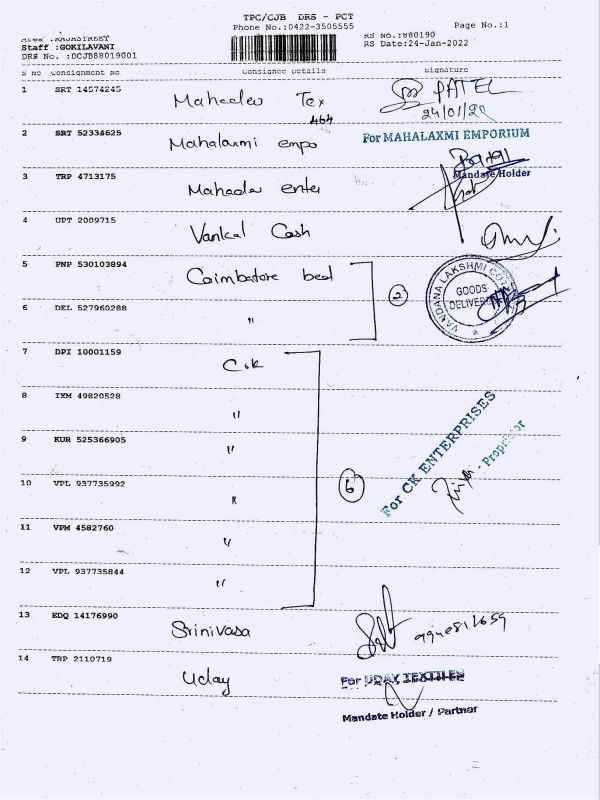 TPC/CJB DRS - PCT
Phone No.:0422-3505555
Page No.:1
Staff :GOKILAVANI
DRS No. :DCJB88019001
RS No.:880190
RS Date:24-Jan-2022
S No Consignment No Consignee Details Signature
1 SRT 14574245 Mahadev Tex PATEL
464 24/01/22
2 SRT 52334625 Mahalaxmi empo For MAHALAXMI EMPORIUM
Mandate Holder
3 TRP 4713175 Mahadev enter
4 UPT 2009715 Vankal Cash
5 PNP 530103894 Coimbatore bed 2
VANDANA LAKSHMI
GOODS
DELIVERED
6 DEL 527960288 "
7 DPI 10001159 C.K
8 IXM 49820528 "
9 KUR 525366905 "
For CK ENTERPRISES
Proprietor
10 VPL 937735992 " 6
11 VPM 4582760 "
12 VPL 937735844 "
13 EDQ 14176990 Srinivasa
14 TRP 2110719 Uday For UDAY TEXTILES
Mandate Holder / Partner